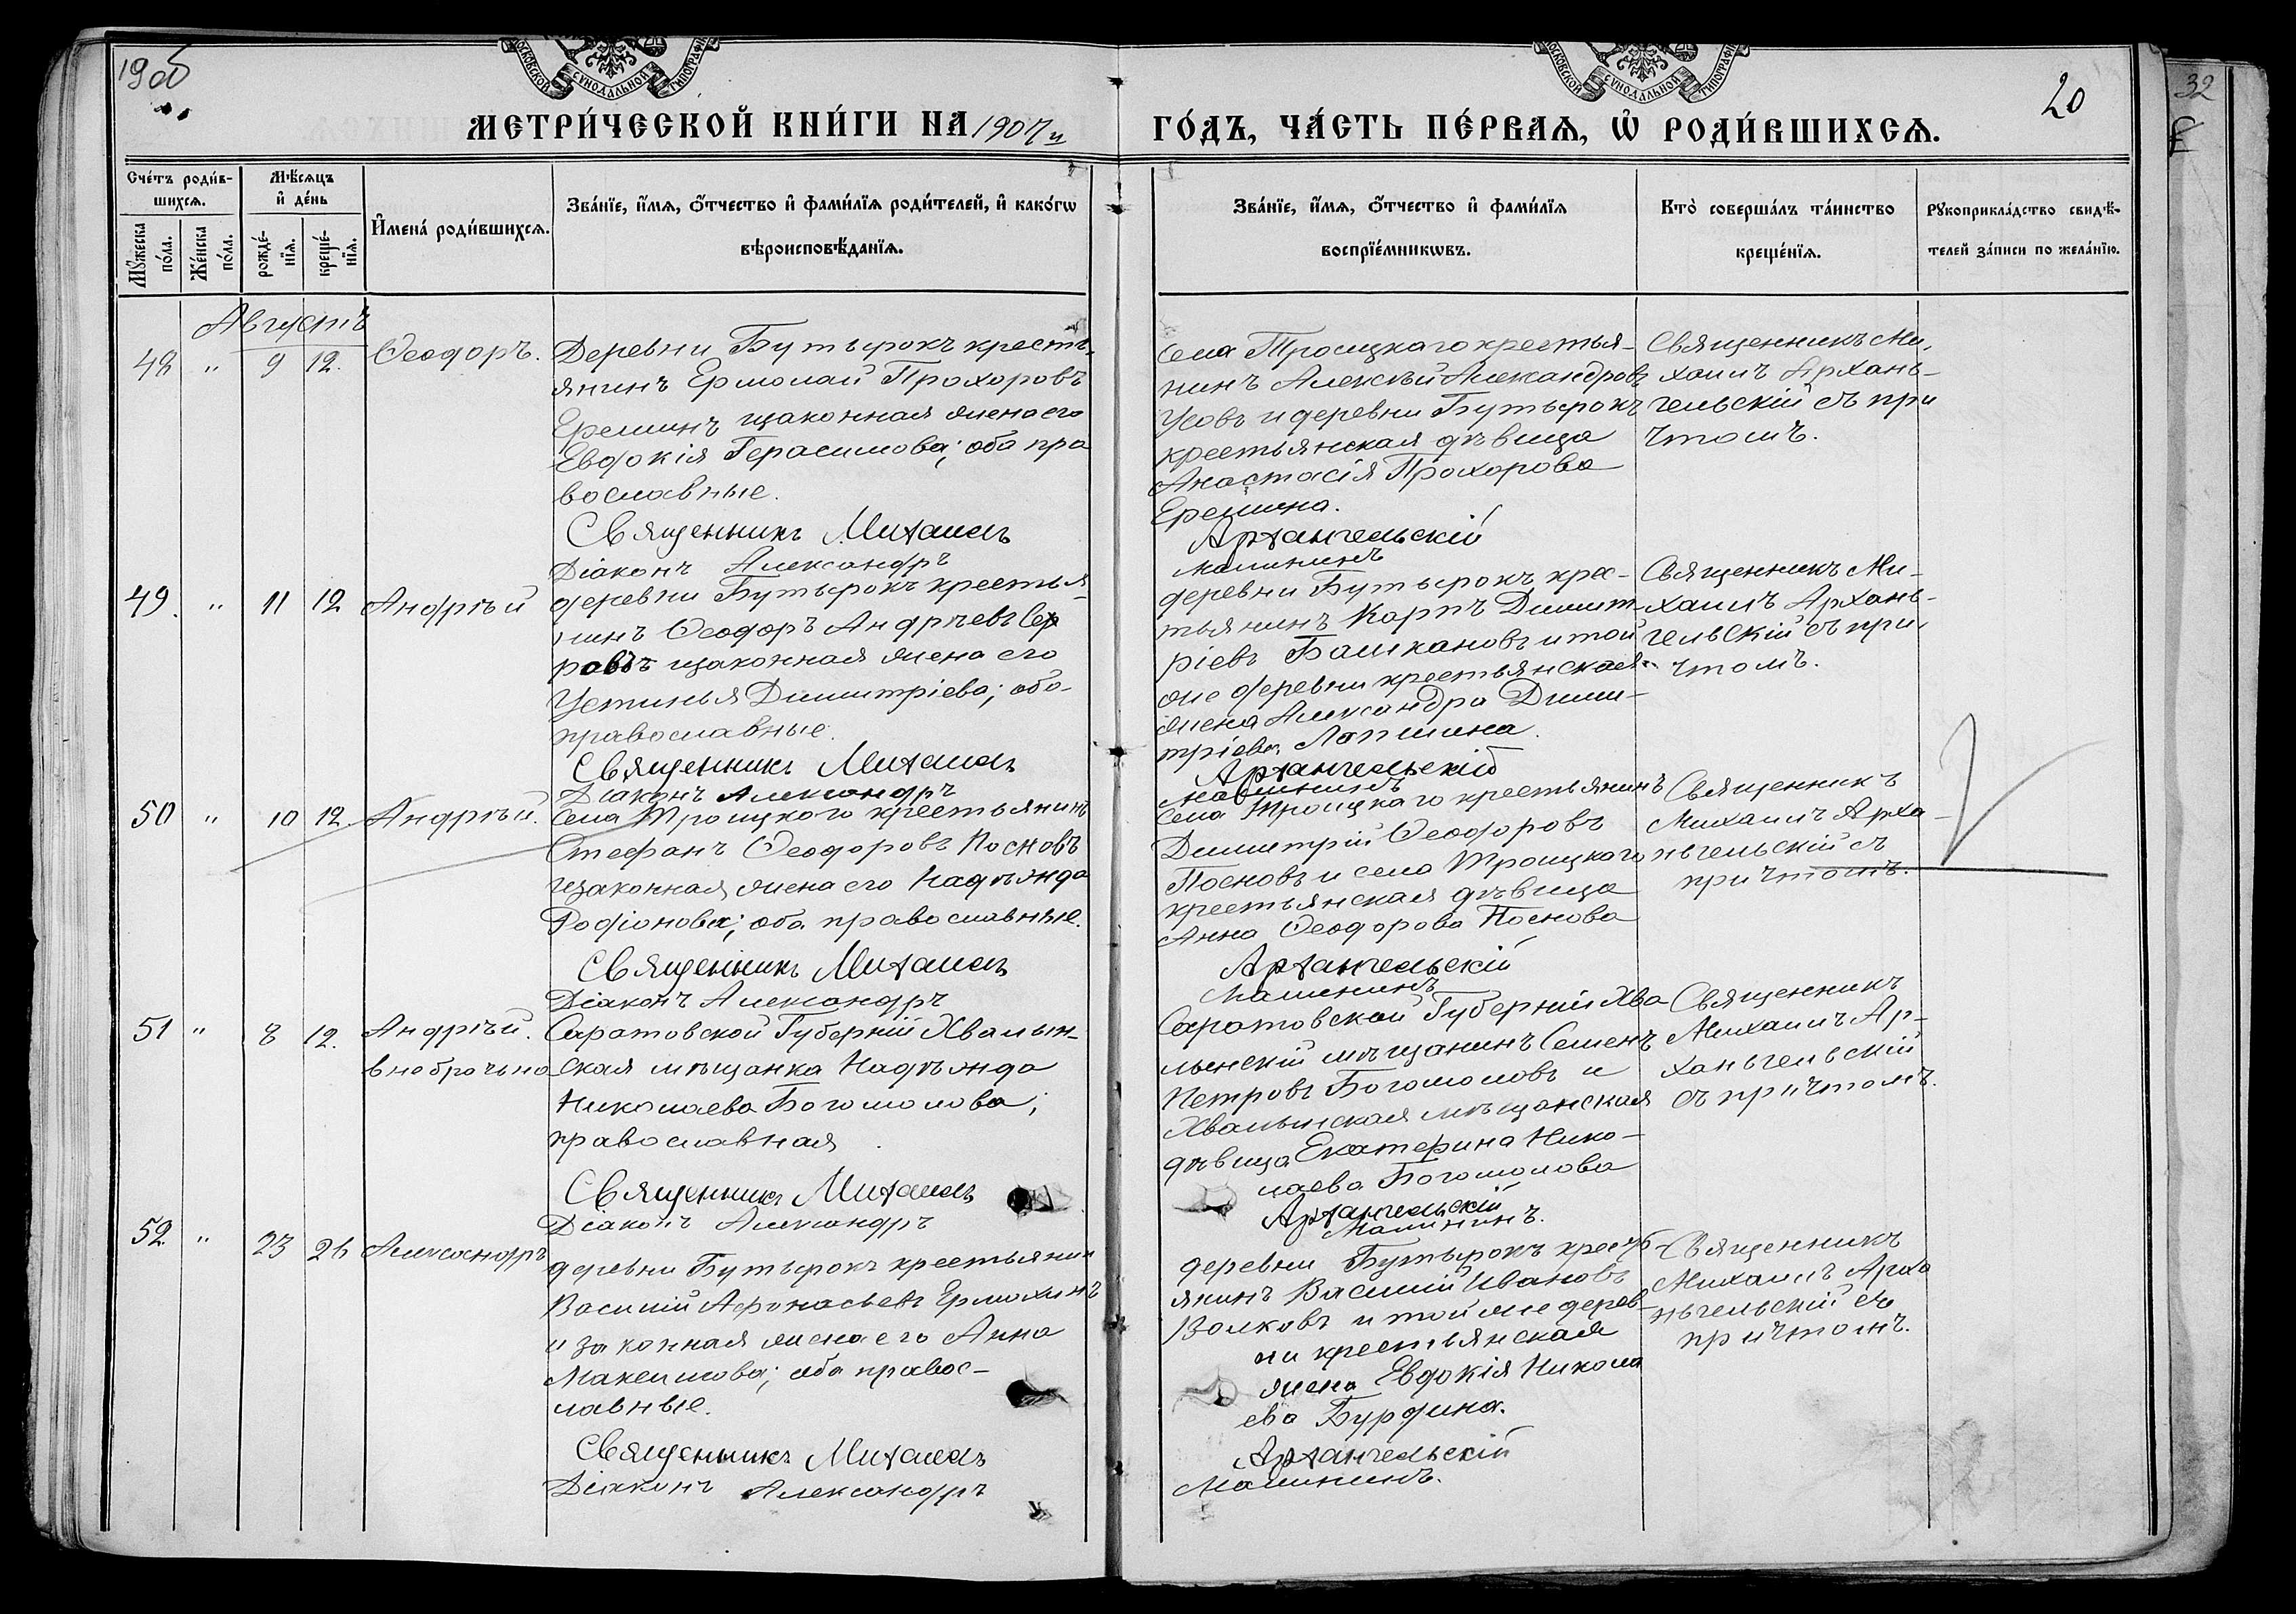 19об
20
32
МОСКОВСКОЙ СѴНОДАЛЬНОЙ ТИПОГРАФІИ
МОСКОВСКОЙ СѴНОДАЛЬНОЙ ТИПОГРАФІИ
МЕТРИ́ЧЕСКОЙ КНИ́ГИ НА 1907й
ГО́ДЪ, ЧА́СТЬ ПЕ́РВАѦ, Ѡ҆ РОДИ́ВШИХСѦ.
Сче́тъ роди́в-
шихсѧ.
Мѣ́сѧцъ
и҆ де́нь
Мꙋ́жеска
по́ла.
Же́нска
по́ла.
рожде́-
нїѧ.
креще́-
нїѧ.
И҆мена̀ роди́вшихсѧ.
Зва́нїе, и҆́мѧ, ѻ҆́тчество и҆ фами́лїѧ роди́телей, и҆ како́гѡ
вѣроисповѣ́данїѧ.
Зва́нїе, и҆́мѧ, ѻ҆́тчество и҆ фами́лїѧ
воспрїе́мникѡвъ.
Кто̀ соверша́лъ та́инство
креще́нїѧ.
Рꙋкоприкла́дство свидѣ́-
телей за́писи по жела́нїю.
Августъ
48 " 9 12. Ѳеодоръ.
Деревни Бутырокъ кресть-
янинъ Ермолай Прохоровъ
Ерешинъ изаконная жена его
Евдокія Герасимова; оба пра
вославные.
Священникъ Михаилъ
Діаконъ Александръ
Села Троицкаго крестья-
нинъ Алексѣй Александровъ
Усовъ и деревни Бутырокъ
крестьянская дѣвица
Анастасія Прохорова
Ерешина.
Архангельскій
Малининъ
Священникъ Ми-
хаилъ Архань-
гельскій съ при
чтомъ.
49. " 11 12 Андрѣй
деревни Бутырокъ крестья-
нинъ Ѳеодоръ Андреевъ Сер
ровъ изаконная жена его
Устинья Димитріева; оба
православные.
Священникъ Михаилъ
Діаконъ Александръ
деревни Бутырокъ крес-
тьянинъ Карпъ Димит-
ріевъ Башкановъ и той
же деревни крестьянская
жена Александра Дими-
тріева Лапшина.
Архангельскій
Малининъ
Священникъ Ми-
хаилъ Архань-
гельскій съ при-
чтомъ.
50 " 10 12 Андрѣй.
Села Троицкого крестьянинъ
Стефанъ Ѳеодоровъ Посновъ
изаконная жена его Надѣжда
Родіонова; оба православные.
Священникъ Михаилъ
Діаконъ Александръ
Села Троицкаго крестьянинъ
Димитрій Ѳеодоровъ
Посновъ и села Троицкаго
крестьянская дѣвица
Анна Ѳеодорова Поснова
Архангельскій
Малининъ
Священникъ
Михаилъ Арха-
ньгельскій съ
причтомъ.
51 " 8 12. Андрѣй.
внебрачьно
Саратовской Губерніи Хвалын-
ская мѣщанка Надѣжда
Николаева Богомолова;
православная.
Священникъ Михаилъ
Діаконъ Александръ
Саратовской Губерніи Хва-
лынскій мѣщанинъ Семенъ
Петровъ Богомоловъ и
Хвалынская мѣщанская
дѣвица Екатерина Нико-
лаева Богомолова
Архангельскій
Малининъ.
Священникъ
Михаилъ Ар-
ханьгельскій
съ причтомъ.
52 " 23 26 Александръ
деревни Бутырокъ крестьянин
Василій Афонасьевъ Ермохинъ
и законная жена его Анна
Максимова; оба правос-
лавные.
Священникъ Михаилъ
Діаконъ Александръ
деревни Бутырокъ кресть-
янинъ Василій Ивановъ
Волковъ и той же дерев-
ни крестьянская
жена Евдокія Никола
ева Бурдина.
Архангельскій
Малининъ.
Священникъ
Михаилъ Арха
ньгельскій съ
причтомъ.